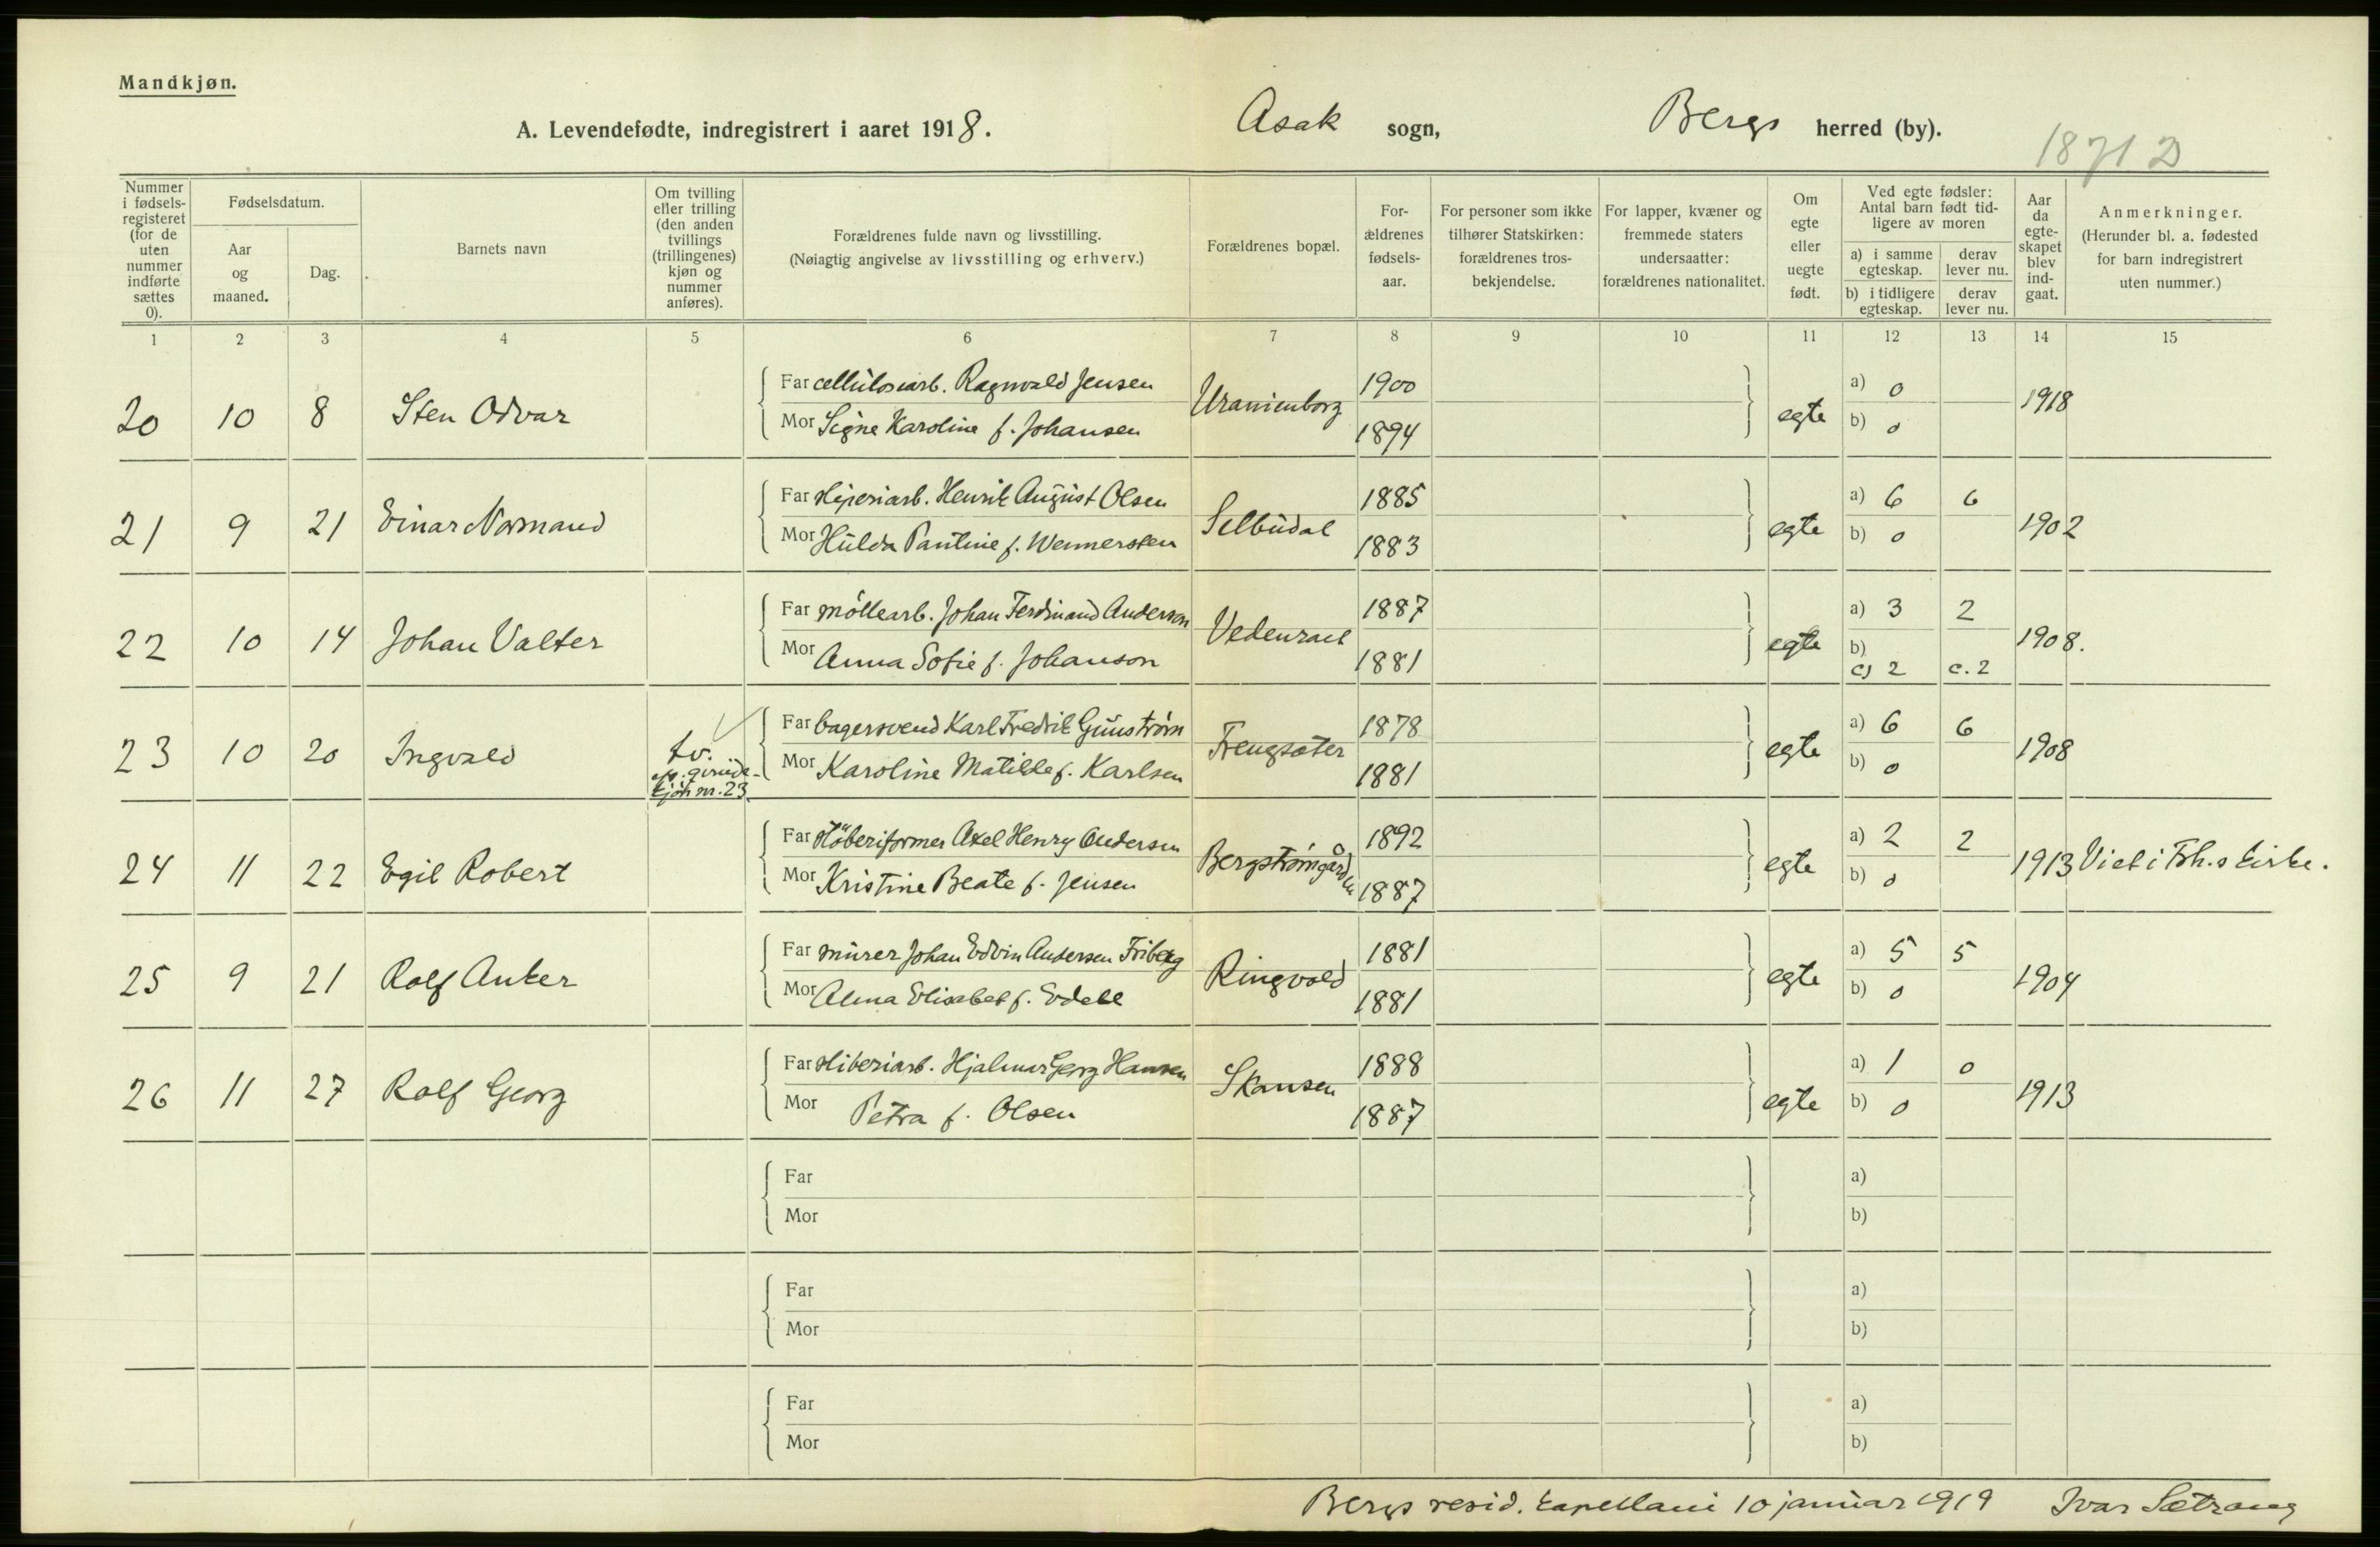 Mandkjøn.
A. Levendefødte, indregistrert i aaret 1918. Asak sogn, Bergs herred (by).
1871 D
Nummer i fødsels-registeret (for de uten nummer indførte sættes 0).
Fødselsdatum.
Aar og maaned.
Dag.
Barnets navn
Om tvilling eller trilling (den anden tvillings (trillingenes) kjøn og nummer anføres).
Forældrenes fulde navn og livsstilling.
(Nøiagtig angivelse av livsstilling og erhverv.)
Forældrenes bopæl.
For-ældrenes fødsels-aar.
For personer som ikke tilhører Statskirken: forældrenes tros-bekjendelse.
For lapper, kvæner og fremmede staters undersaatter: forældrenes nationalitet.
Om egte eller uegte født.
Ved egte fødsler: Antal barn født tid-ligere av moren
a) i samme egteskap. derav lever nu.
b) i tidligere egteskap. derav lever nu.
Aar da egte-skapet blev ind-gaat.
Anmerkninger.
(Herunder bl. a. fødested for barn indregistrert uten nummer.)
1 2 3 4 5 6 7 8 9 10 11 12 13 14 15
20 10 8 Sten Odvar
Far cellulosearb. Ragnvald Jensen Uranienborg 1900 egte a) 0 1918
Mor Signe Karoline f. Johansen 1894 b) 0
21 9 21 Einar Normand
Far Henrik August Olsen Selbudal 1885 egte a) 6 6 1902
Mor Hulda Pauline f. Wennersten 1883 b) 0
22 10 14 Johan Valter
Far möllearb. Johan Ferdinand Anderson 1887 egte a) 3 2 1908.
Mor Anna Sofie f. Johanson 1881 b)
c) 2 c. 2
23 10 20 Ingvald tv. kjön nr. 23
Far bagersvend Karl Fredrik 1878 egte a) 6 6 1908
Mor Karoline Matilde f. Karlsen 1881 b) 0
24 11 22 Egil Robert
Far Axel Henry Andersen 1892 egte a) 2 2 1913 Viet i Fr.h.s kirke.
Mor Kristine Beate f. Jensen 1887 b) 0
25 9 21 Rolf Anker
Far murer Johan Edvin Andersen Friberg Ringvold 1881 egte a) 5 5 1904
Mor Alma Elisabet f. 1881 b) 0
26 11 27 Rolf Georg
Far Hjalmar Georg Hansen Skansen 1888 egte a) 1 0 1913
Mor Petra f. Olsen 1887 b) 0
Far a)
Mor b)
Far a)
Mor b)
Far a)
Mor b)
Bergs resid. kapellani 10 januar 1919 Ivar Sætrang